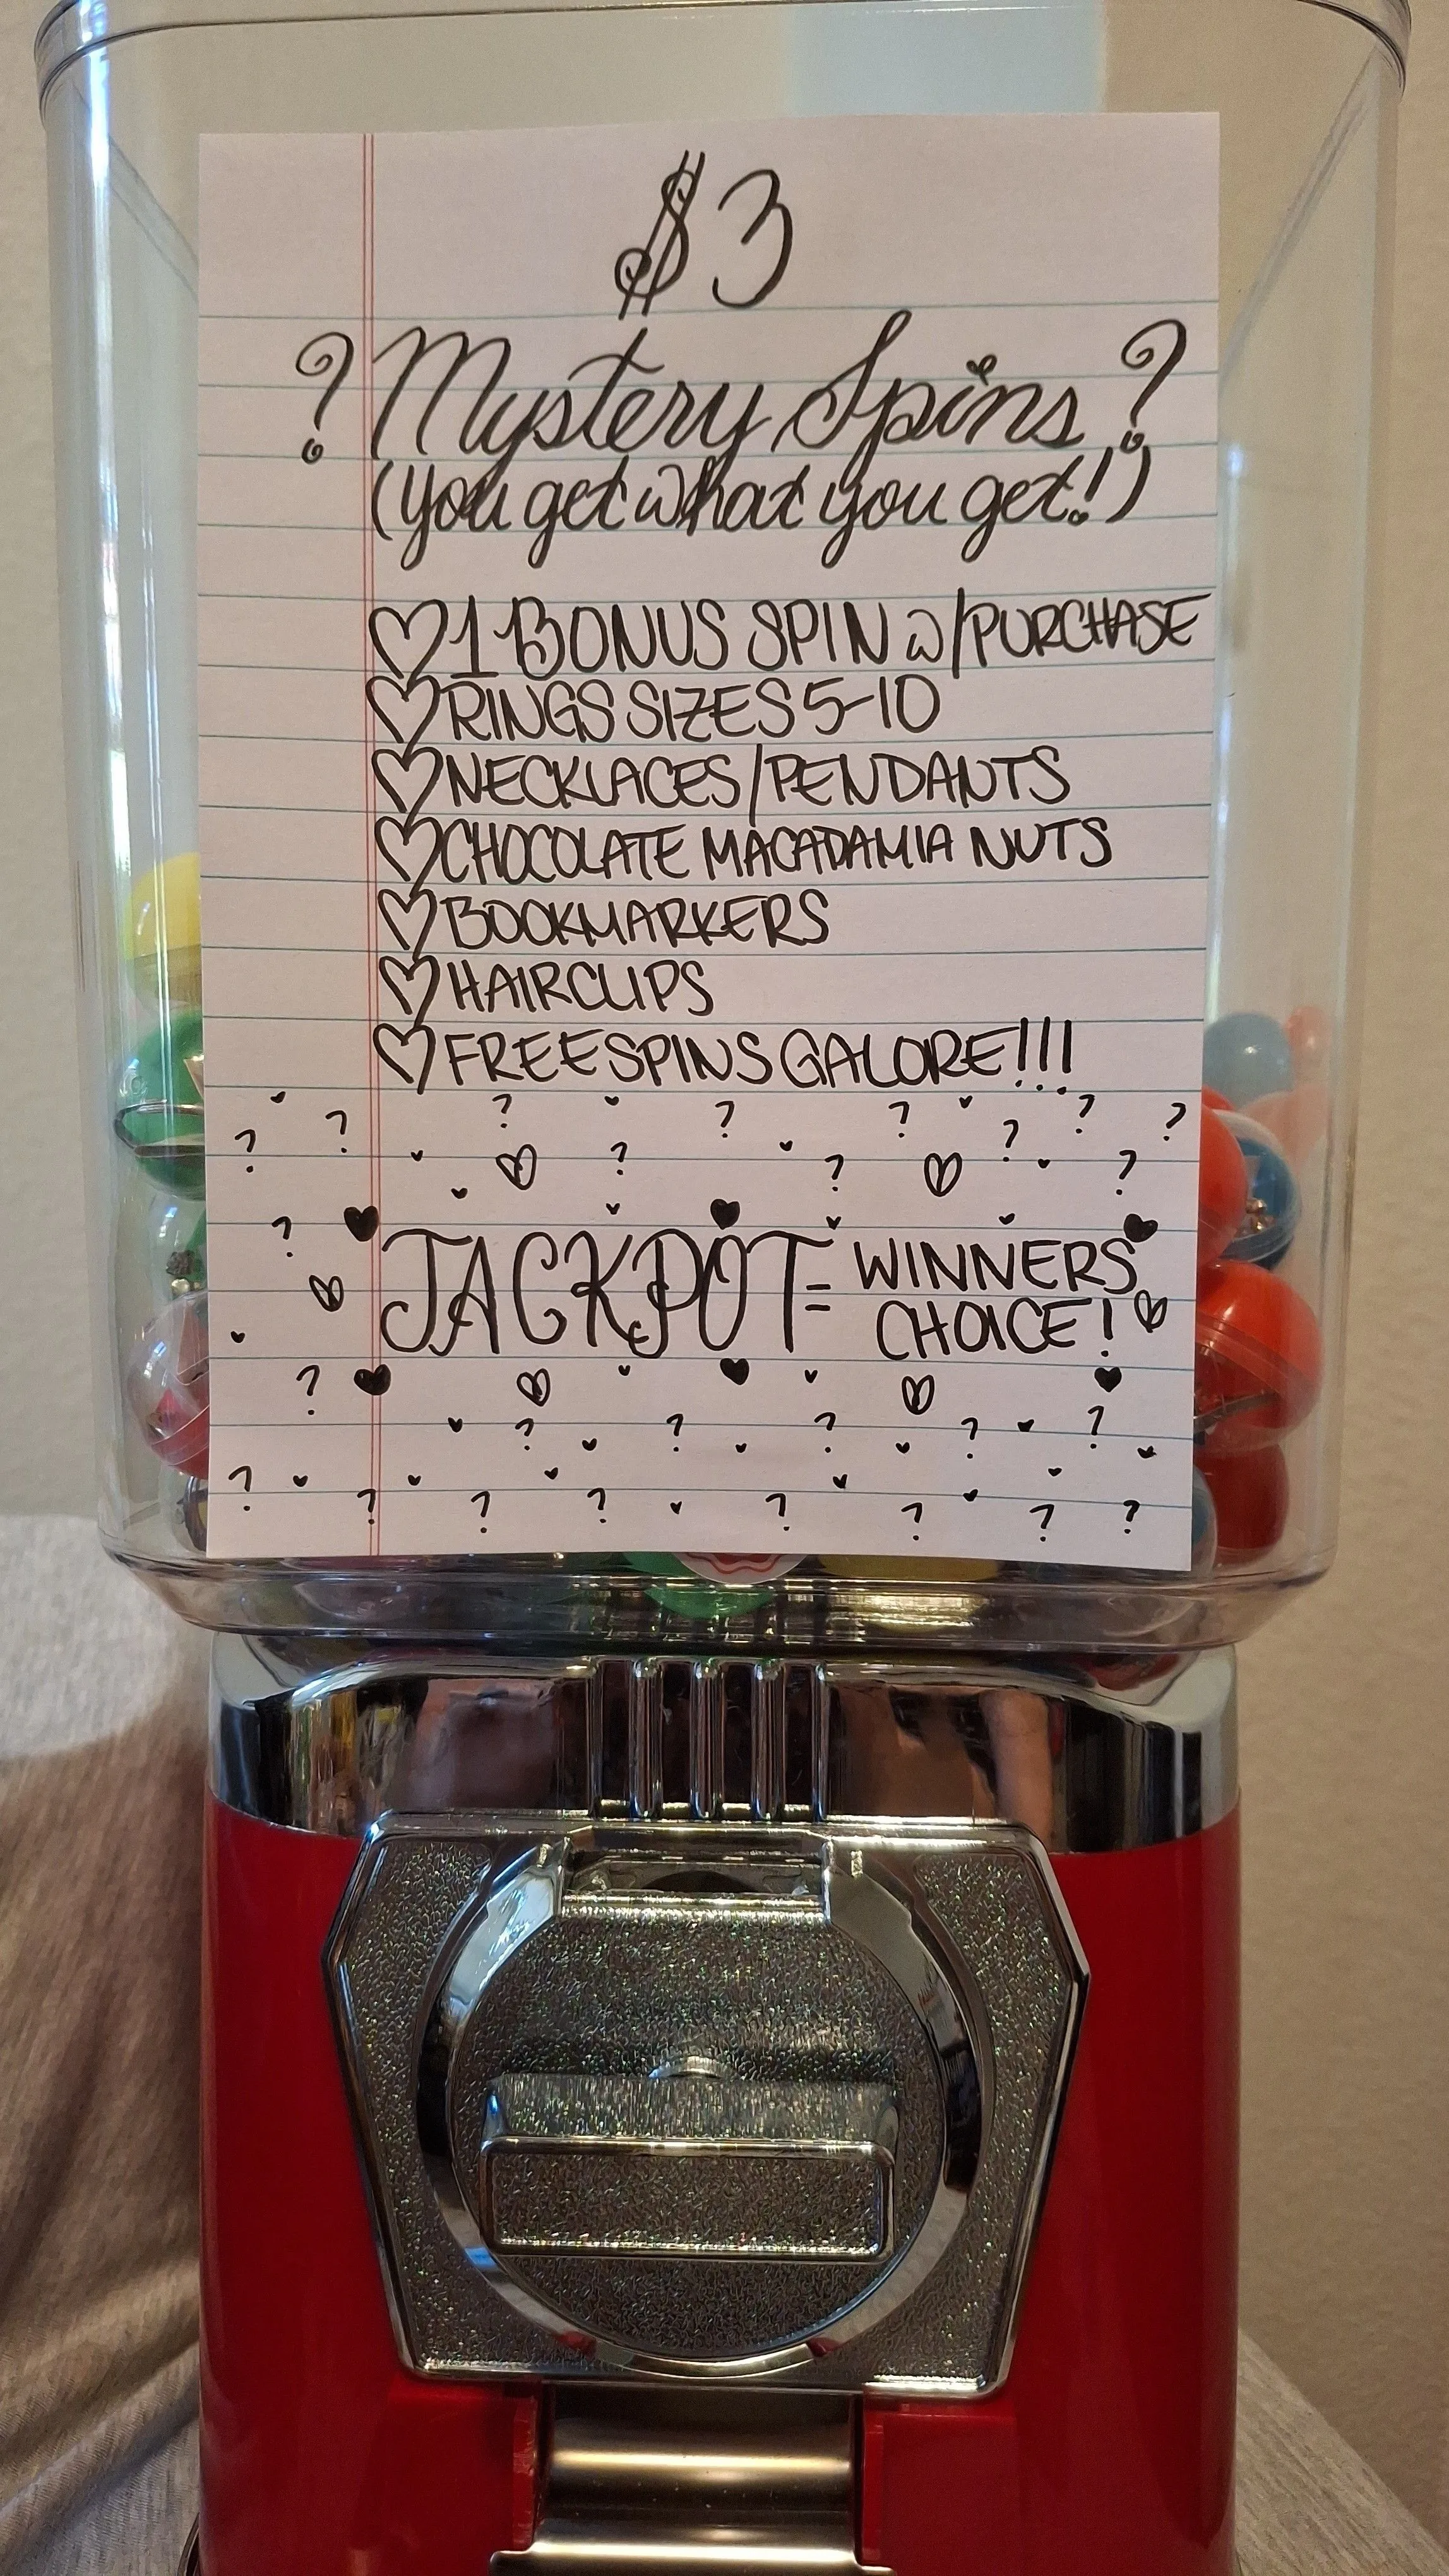 $3
? Mystery Spins ?
(you get what you get!)
♡ 1 BONUS SPIN w/PURCHASE
♡ RINGS SIZES 5-10
♡ NECKLACES/PENDANTS
♡ CHOCOLATE MACADAMIA NUTS
♡ BOOKMARKERS
♡ HAIRCLIPS
♡ FREE SPINS GALORE!!!
JACKPOT = WINNERS
CHOICE!